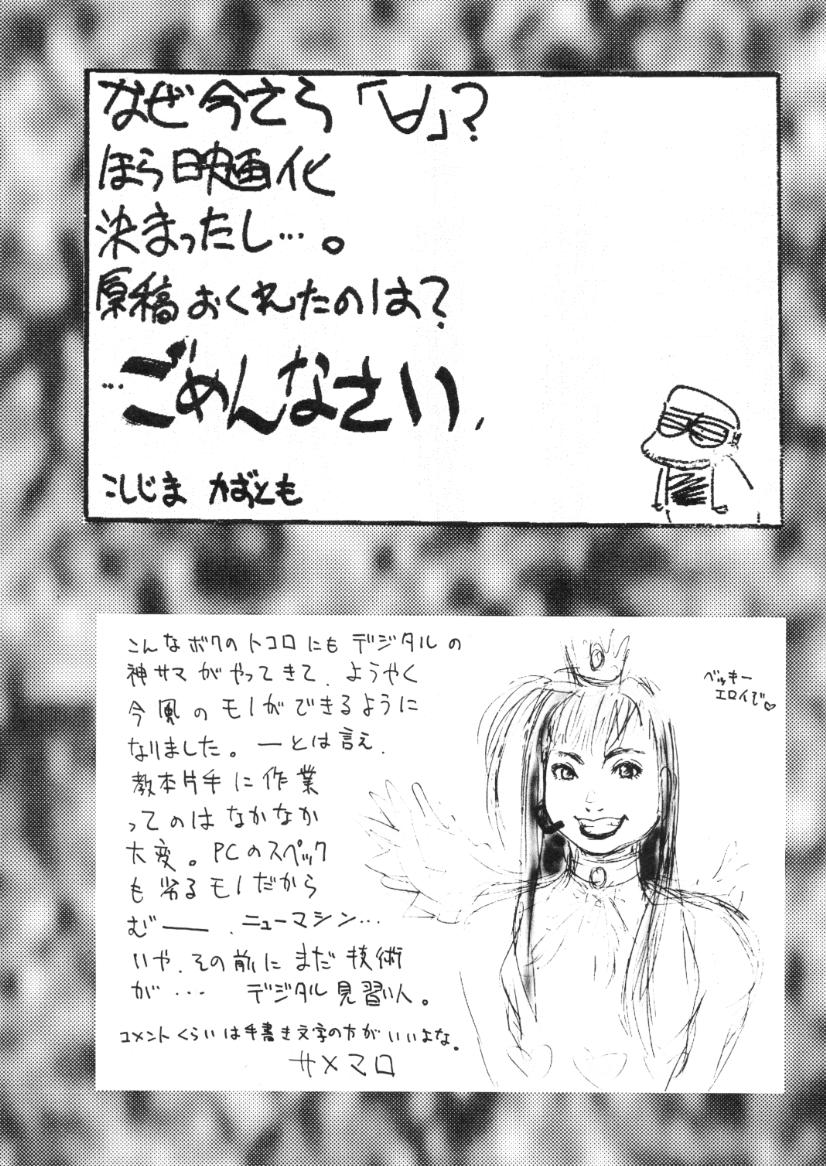 なぜ今さら「∀」？
ほら映画化
決まったし…。
原稿おくれたのは？
…ごめんなさい、
こしじま かずとも
こんなボクのトコロにもデジタルの
神サマがやってきて、ようやく
今風のモノができるように
なりました。ーとは言え、
教本片手に作業
ってのはなかなか
大変。PCのスペック
も劣るモノだから
むー、ニューマシン…
いや、その前にまだ技術
が… デジタル見習い人。
コメントくらいは手書き文字の方がいいよな。
サメマロ
ベッキー
エロイで♡